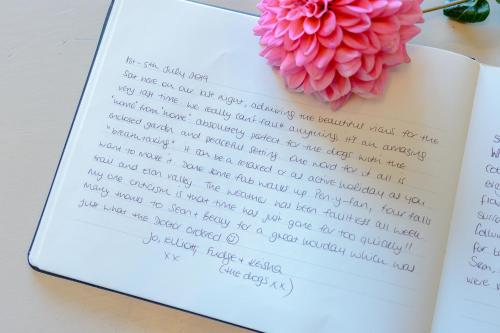 1st - 5th July 2019
Sat here on our last night, admiring the beautiful views for the
very last time. We really can't fault anything. It's an amazing
"home from home" absolutely perfect for the dogs with the
enclosed garden and peaceful setting. One word for it all is
"breathtaking". It can be a relaxed or as active holiday as you
want to make it. Done some fab walks up Pen-y-fan, four falls
trail and elan valley. The weather has been faultless all week.
My one criticism is that time has just gone far too quickly!!
Many thanks to Sean + Becky for a great holiday which was
just what the Doctor ordered ☺
Jo, Elliott, Fudge + Keisha
xx (the dogs xx)